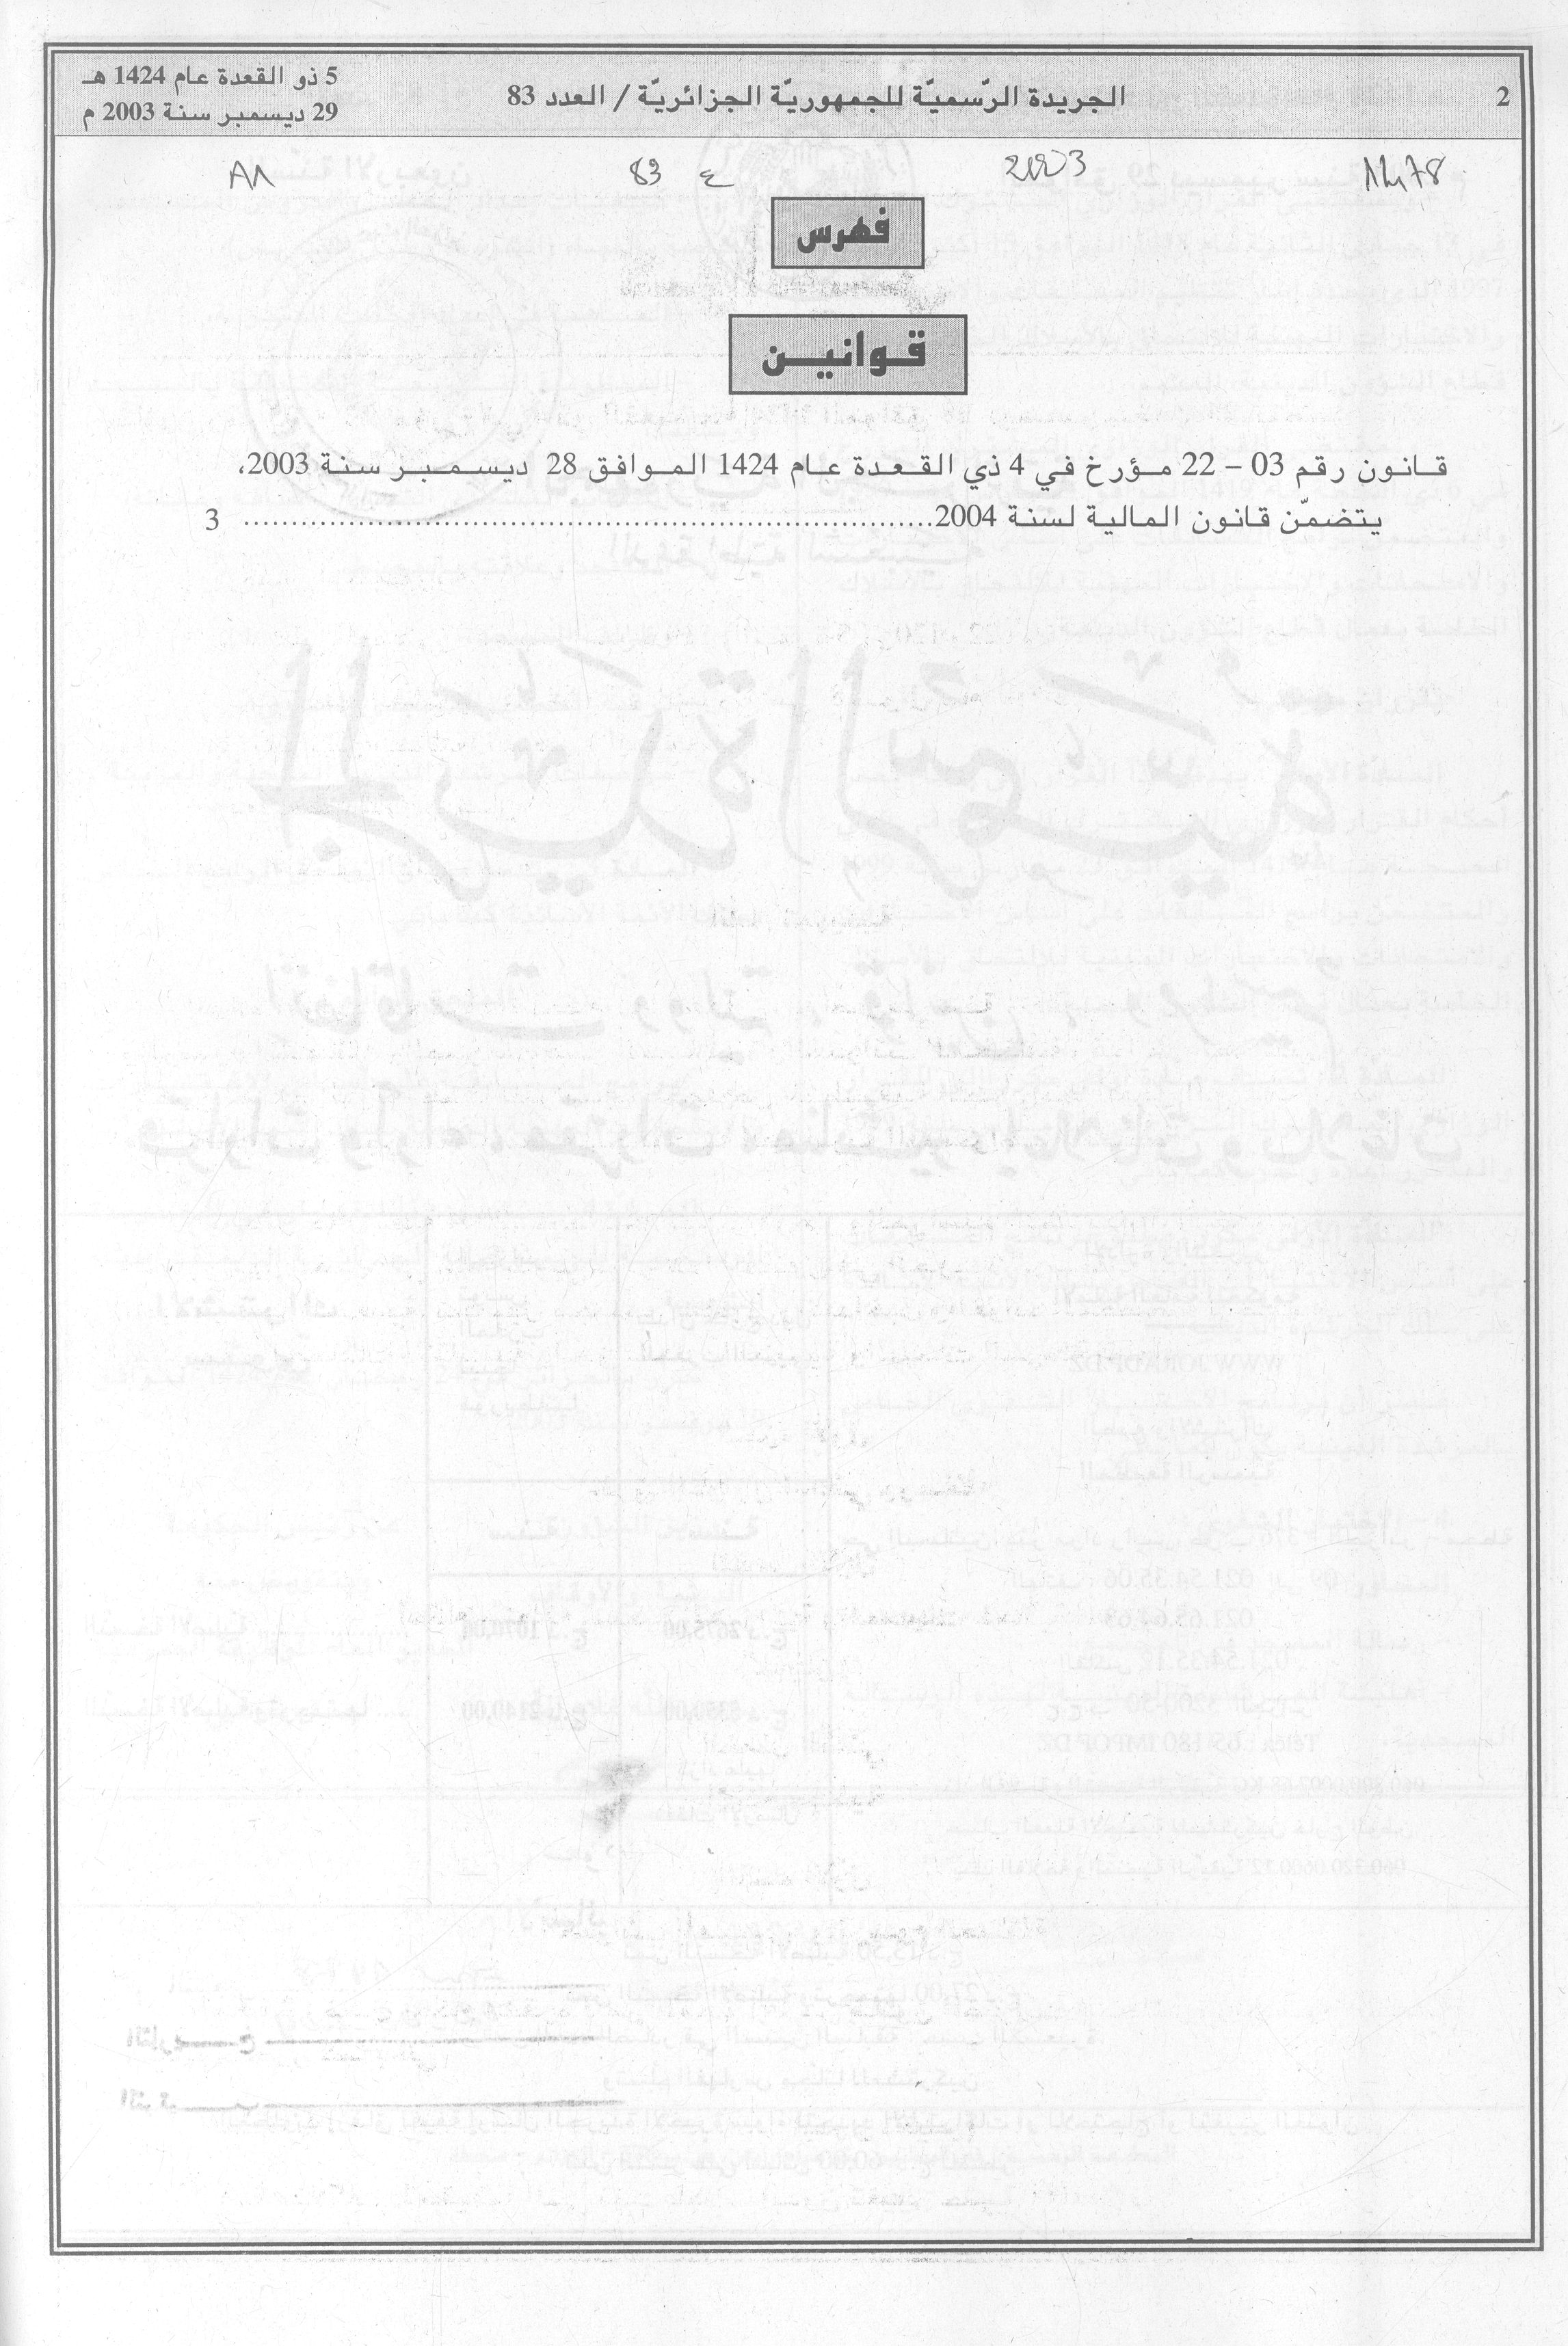 2
الجريدة الرّسميّة للجمهوريّة الجزائريّة / العدد 83
5 ذو القعدة عام 1424 هـ
29 ديسمبر سنة 2003 م
2003
ع 83
فهرس
قوانين
قانون رقم 03 – 22 مؤرخ في 4 ذي القعدة عام 1424 الموافق 28 ديسمبر سنة 2003،
يتضمّن قانون المالية لسنة 2004........................................................................ 3